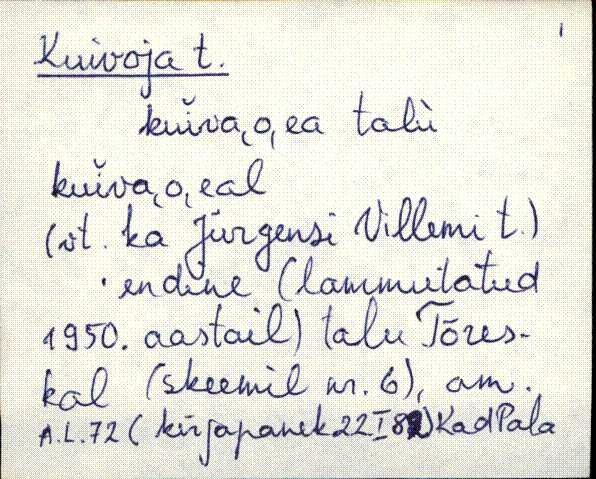 Kuivoja t.
kuĭva,o,ea talù
kuĭva,o,eal
(vt. ka Jürgensi Villemi t.)
endine (lammutatud
1950. aastail) talu Tõres-
kal (skeemil nr. 6), am.
A.L.72 (kirjapanek 22 I 82) KadPala